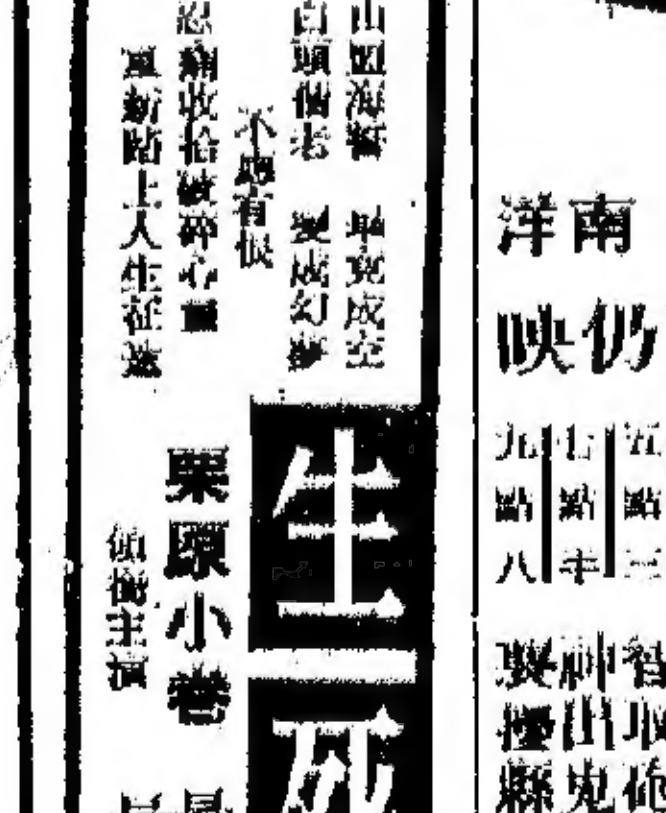 南洋
仍映
五點三
七點半
九點八
智取
神出鬼
山盟海誓 畢竟成空
白頭偕老 變成幻夢
不應有恨
忍痛收拾破碎心靈
重新踏上人生征途
生
死
栗原小卷
領銜主演